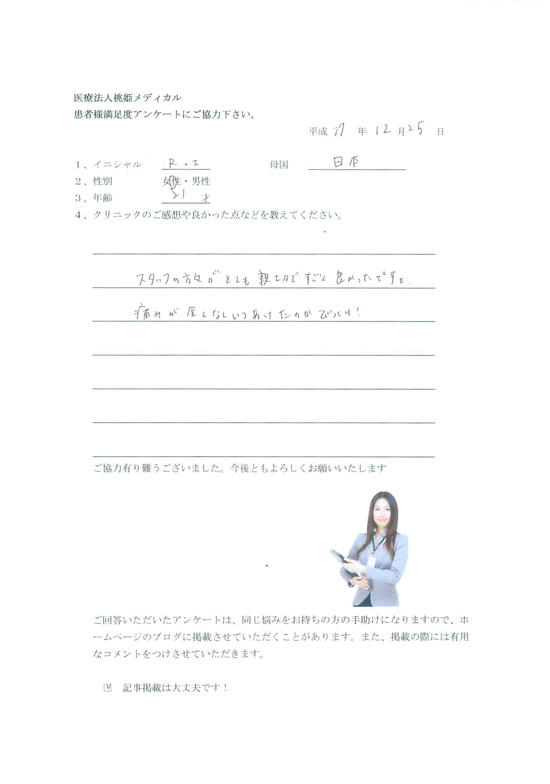 医療法人桃姫メディカル
患者様満足度アンケートにご協力下さい。
平成 27 年 12 月 25 日
1、イニシャル R・I 母国 日本
2、性別 女性・男性
3、年齢 21 才
4、クリニックのご感想や良かった点などを教えてください。
スタッフの方々がとても親切ですごく良かったです。
痛みが全くなしいつあけたのかびっくり!
ご協力有り難うございました。今後ともよろしくお願いいたします
ご回答いただいたアンケートは、同じ悩みをお持ちの方の手助けになりますので、ホ
ームページのブログに掲載させていただくことがあります。また、掲載の際には有用
なコメントをつけさせていただきます。
☑ 記事掲載は大丈夫です!